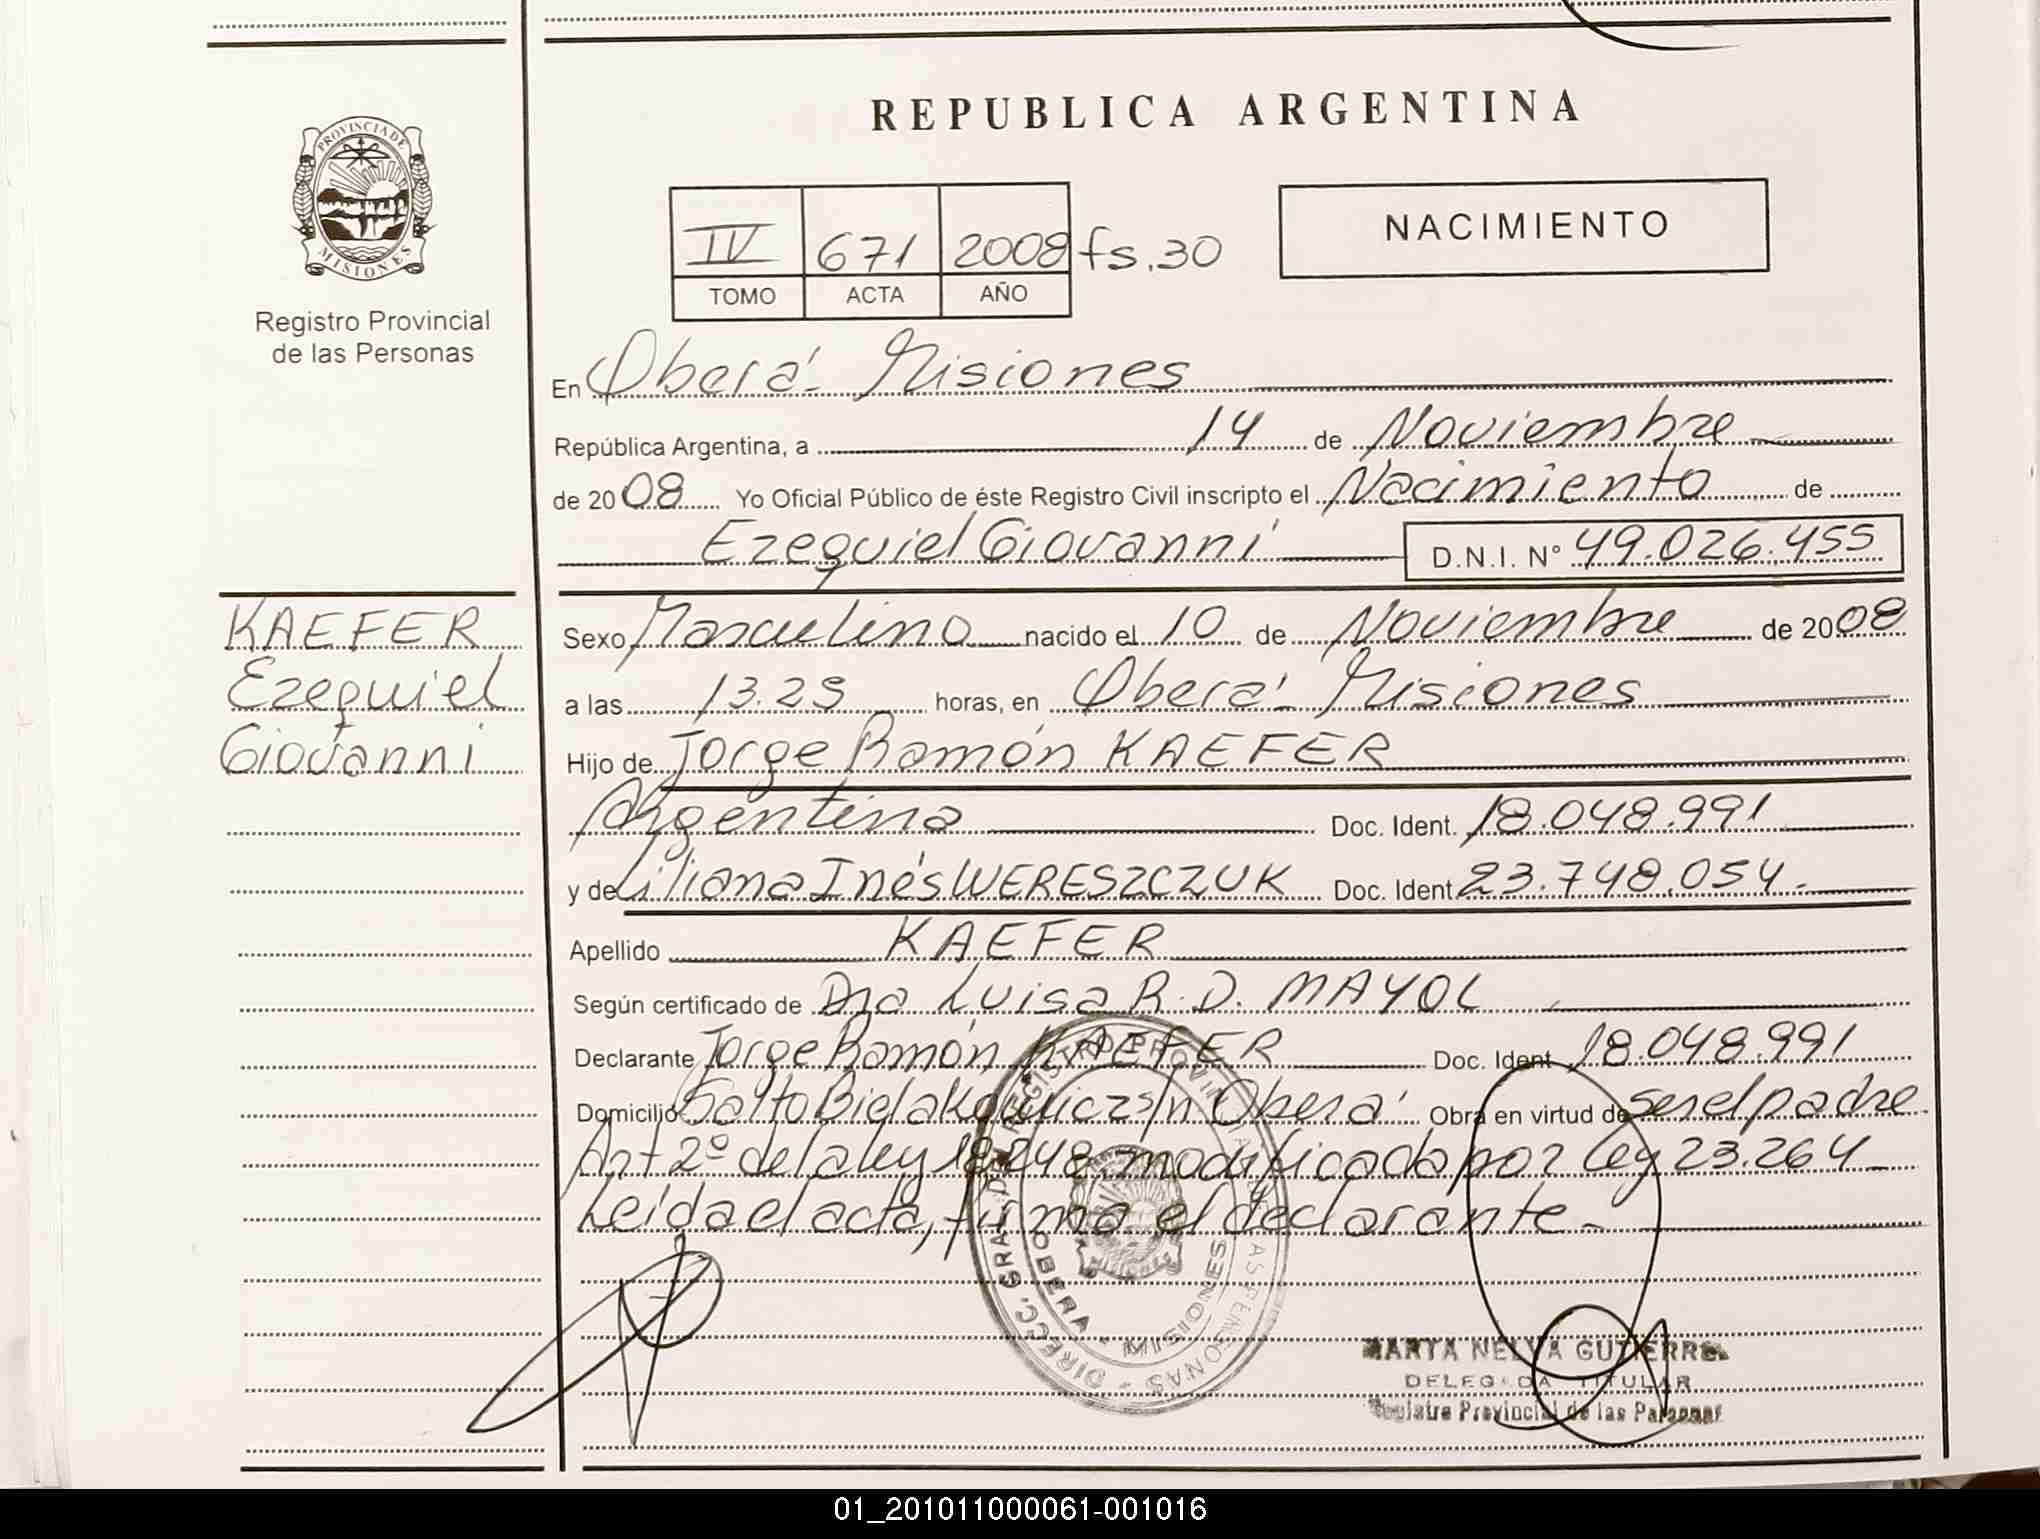 REPUBLICA ARGENTINA
PROVINCIA DE
MISIONES
Registro Provincial
de las Personas
IV 671 2008 fs.30
TOMO ACTA AÑO
NACIMIENTO
En Oberá - Misiones
República Argentina, a 14 de Noviembre
de 2008 Yo Oficial Público de éste Registro Civil inscripto el Nacimiento de
Ezequiel Giovanni D.N.I. N° 49.026.455
KAEFER
Ezequiel
Giovanni
Sexo Masculino nacido el 10 de Noviembre de 2008
a las 13.25 horas, en Oberá - Misiones
Hijo de Jorge Ramón KAEFER
Argentina Doc. Ident. 18.048.991
y de Liliana Inés WERESZCZUK Doc. Ident 23.748.054.
Apellido KAEFER
Según certificado de Dra Luisa R. D. MAYOL
Declarante Jorge Ramón KAEFER Doc. Ident 18.048.991
Domicilio Salto Bielakowicz s/n Oberá Obra en virtud de ser el padre
Art 2º de la ley 18.248 modificada por ley 23.264
Leída el acta, firma el declarante -
DIRECC. GRAL. DEL REGISTRO PROVINCIAL DE LAS PERSONAS
OBERA - MISIONES
MARTA NELVA GUTIERREZ
DELEGADA TITULAR
Registro Provincial de las Personas
01_201011000061-001016